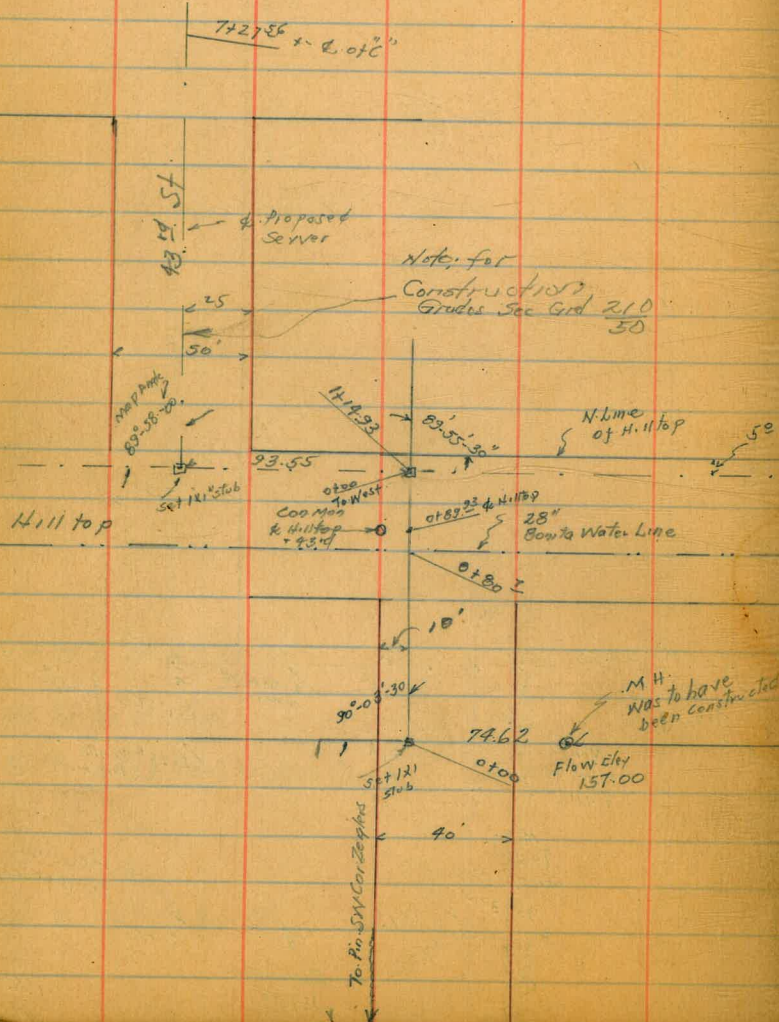 7+27.56
℄ of "C"
43rd St.
℄ Proposed
Sewer
Note: for
Construction
Grades See Grd 210/50
25
50'
Map Angle
89°-58'-00"
1+14.93
89°-55'-30"
N. Line
of Hilltop
5°
93.55
Set 1x1" Stub
0+00
To West
Hilltop
Con Mon
℄ Hilltop
+ 43rd
0+89.93 ℄ Hilltop
28"
Bonita Water Line
0+80
10'
90°-03'-30"
M.H.
Was to have
been constructed
74.62
Set 1x1
Stub
0+00
Flow Elev
157.00
40'
To Pin SW Cor